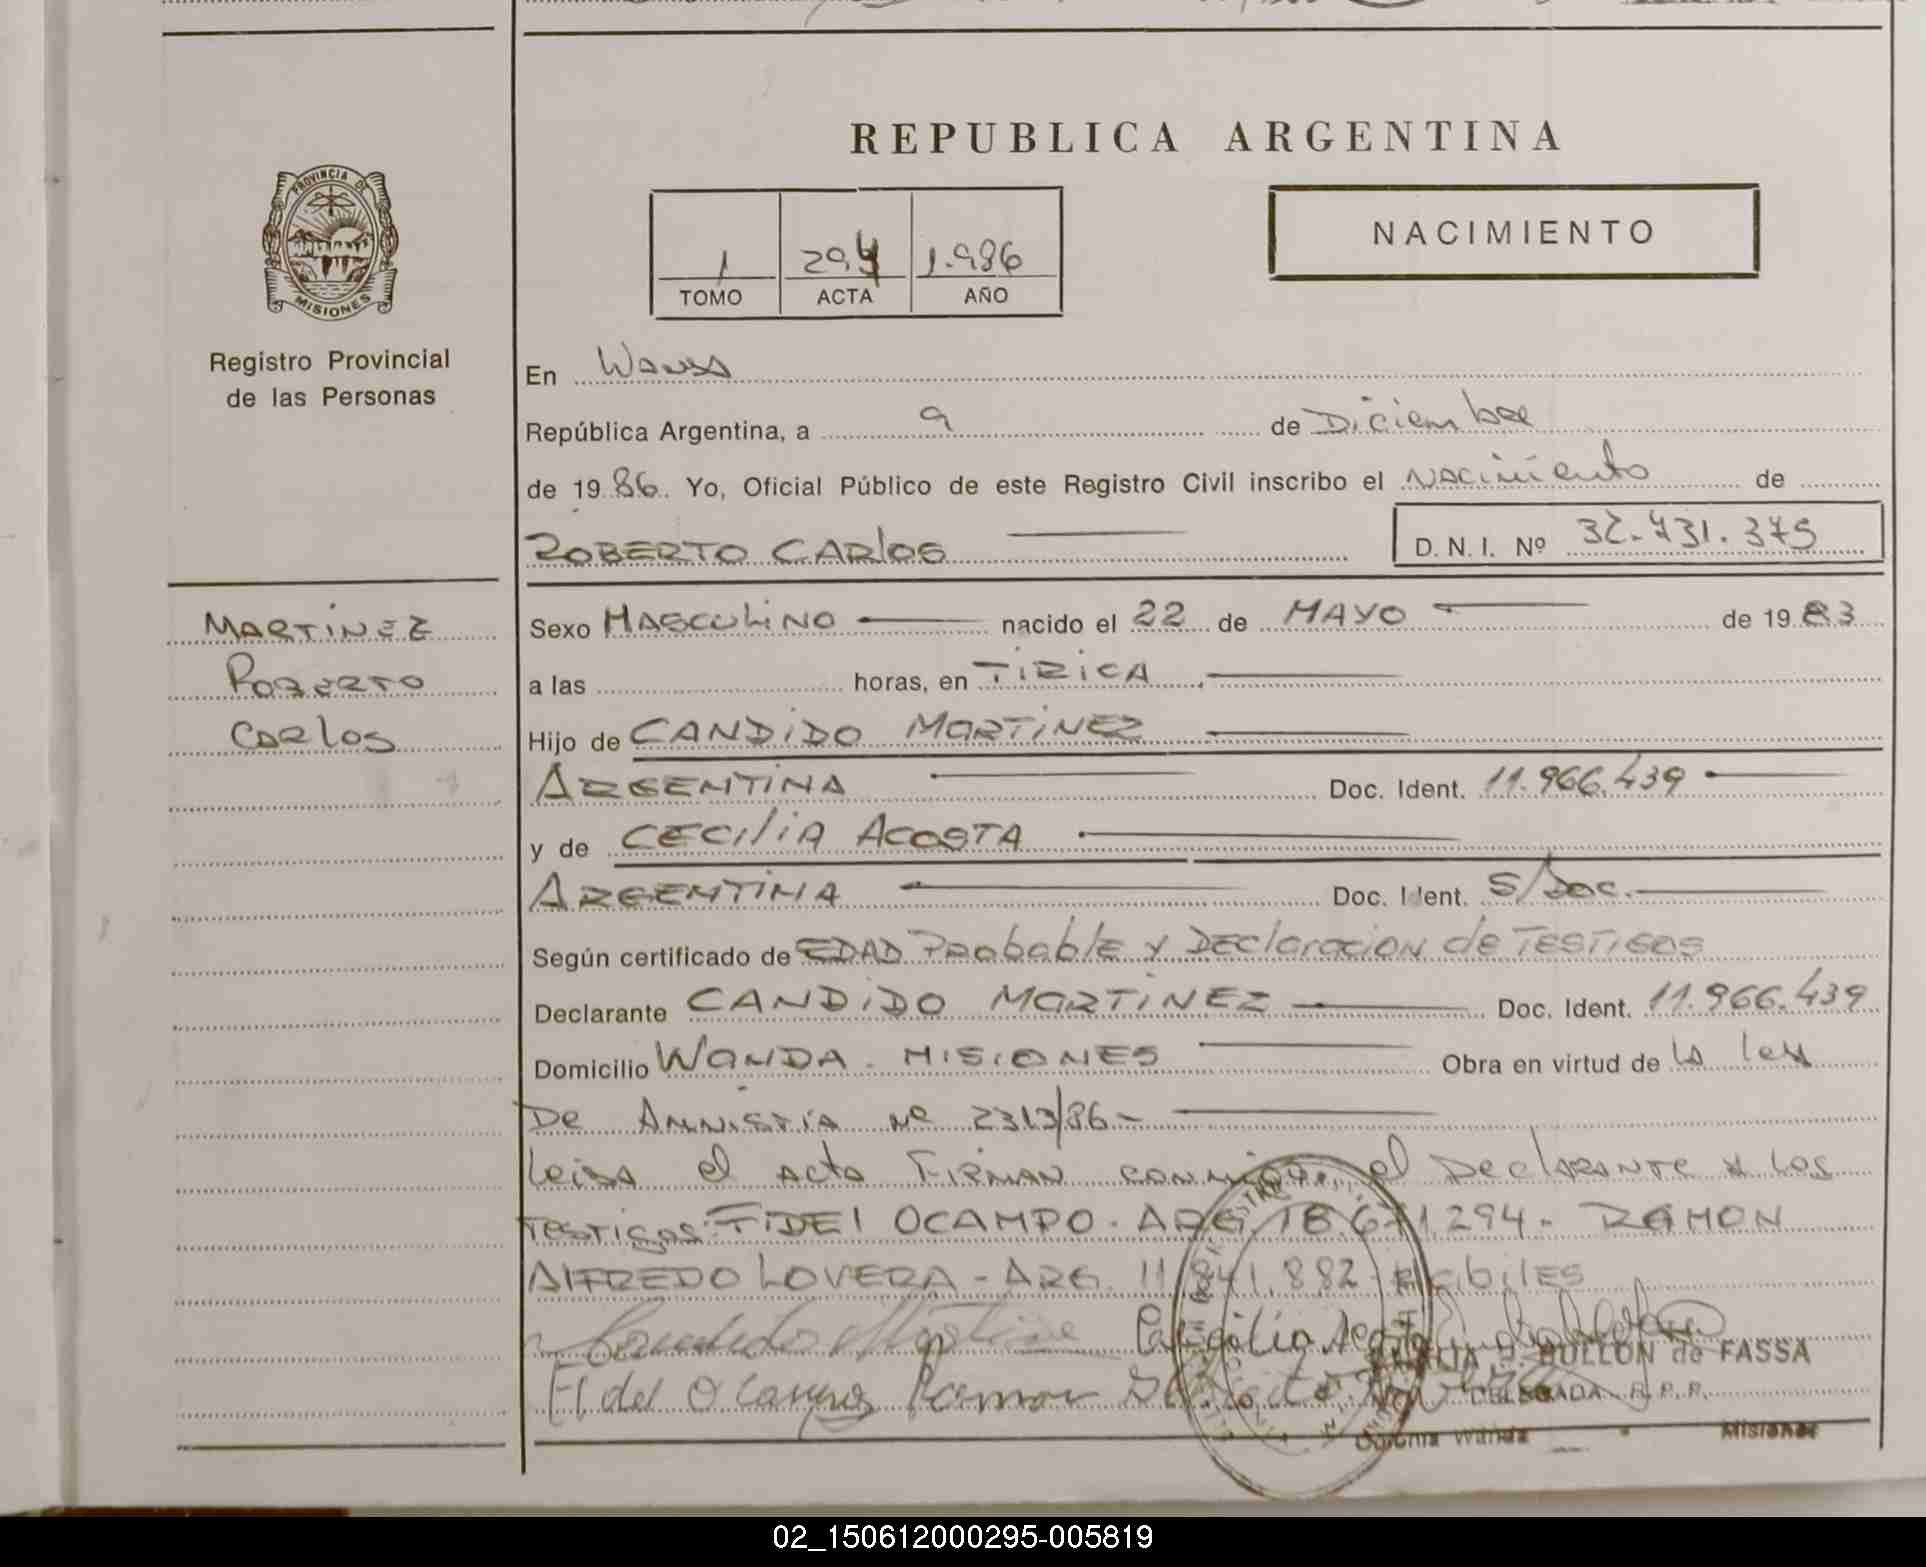 REPUBLICA ARGENTINA
PROVINCIA DE
MISIONES
Registro Provincial
de las Personas
1 294 1.986
TOMO ACTA AÑO
NACIMIENTO
En Wanda
República Argentina, a 9 de Diciembre
de 1986. Yo, Oficial Público de este Registro Civil inscribo el Nacimiento de
ROBERTO CARLOS D. N. I. Nº 32.731.375
MARTINEZ
ROBERTO
CARLOS
Sexo MASCULINO nacido el 22 de MAYO de 1983
a las horas, en TIRICA
Hijo de CANDIDO MARTINEZ
ARGENTINA Doc. Ident. 11.966.439
y de CECILIA ACOSTA
ARGENTINA Doc. Ident. S/Doc.
Según certificado de EDAD Probable y DEClaracion de TESTIGOS
Declarante CANDIDO MARTINEZ Doc. Ident. 11.966.439
Domicilio WANDA - MISIONES Obra en virtud de la ley
De Amnistía Nº 2313/86-
Leida el acta FIRMAN conmigo el Declarante y los
testigos: FIDEL OCAMPO - ARG. 18.671.294 - RAMON
ALFREDO LOVERA - ARG. 11.841.882 - Habiles
Candido Martinez Acosta
Fidel Ocampo Ramon
BULLON de FASSA
DELEGADA R. P. P.
Colonia Wanda - Misiones
02_150612000295-005819